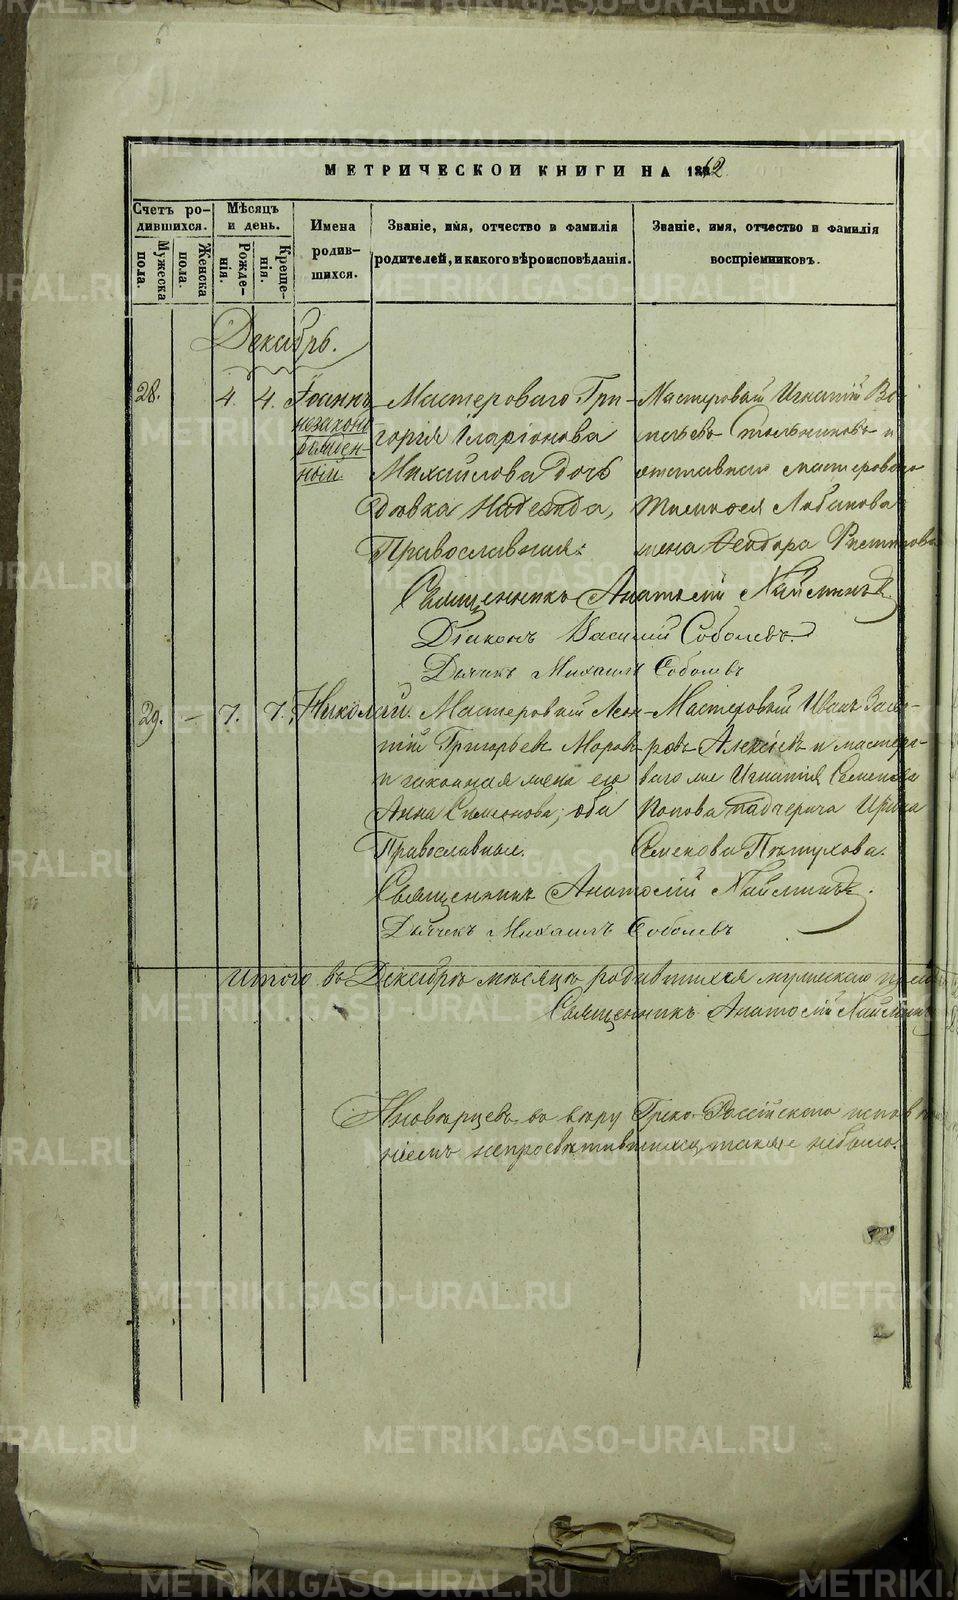 МЕТРИЧЕСКОЙ КНИГИ НА 1862
Счетъ родившихся.
Мужеска пола.
Женска пола.
Мѣсяцъ и день.
Рожденія.
Крещенія.
Имена родившихся.
Званіе, имя, отчество и фамилія родителей, и какого вѣроисповѣданія.
Званіе, имя, отчество и фамилія воспріемниковъ.
Декабрь.
28. 4. 4. Іоаннъ
незаконнорожденный.
Мастероваго Гри-
горія Иларіонова
Михайлова дочь
дѣвка Надежда,
Православная.
Мастеровый Игнатій
и
отставнаго мастероваго
Лабанова
жена Ѳеодора
Священникъ Анатолій
Діаконъ Василій Соболевъ.
Дьячекъ Михаилъ Соболевъ
29. – 7. 7. Николай.
Мастеровый Леон-
тій Григорьевъ
и законная жена его
Анна Симеонова, оба
Православные.
Мастеровый Иванъ
Алексѣевъ и мастеро-
ваго же Игнатія Семенова
Попова падчерича Ирина
Семенова Пѣтухова.
Священникъ Анатолій
Дьячекъ Михаилъ Соболевъ
Итого въ Декабрѣ мѣсяцѣ родившихся мужескаго
Священникъ Анатолій
Иновѣрцевъ въ вѣру Греко-Россійскаго
непросвѣтившихся также небыло.
METRIKI.GASO-URAL.RU